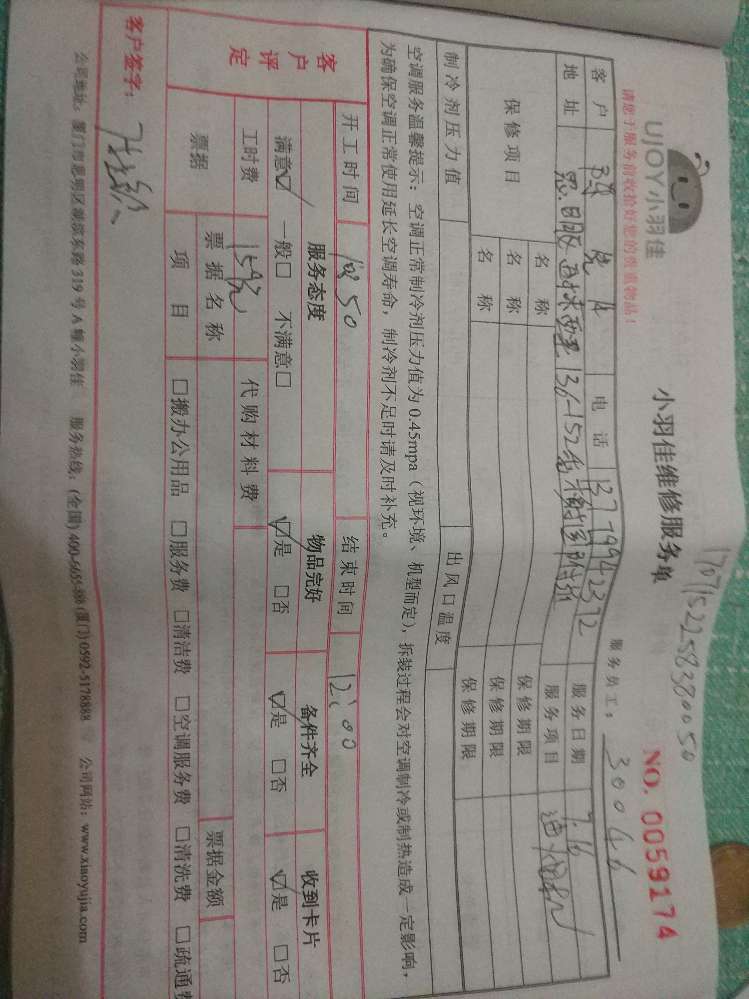 1707152258380050
UJOY小羽佳
请您于服务前收拾好您的贵重物品！
小羽佳维修服务单
NO. 0059174
服务员工： 30046
客户 电话 13779942372 服务日期 7.16
地址 136-152 服务项目
保修项目 名称 保修期限
名称 保修期限
名称 保修期限
制冷剂压力值 出风口温度
空调服务温馨提示：空调正常制冷剂压力值为0.45mpa（视环境、机型而定），拆装过程会对空调制冷或制热造成一定影响，
为确保空调正常使用延长空调寿命，制冷剂不足时请及时补充。
开工时间 10:50 结束时间 12:00
客户评定 服务态度 物品完好 备件齐全 收到卡片
满意☑ 一般□ 不满意□ ☑是 □否 ☑是 □否 ☑是 □否
工时费 159元 代购材料费
票据 票据名称 票据金额
项目 □搬办公用品 □服务费 □清洁费 □空调服务费 □清洗费 □疏通费
客户签字：
公司地址：厦门市思明区 东路319号A幢小羽佳 服务热线：(全国) 400-6655-888 (厦门) 0592-5178888 公司网站：www.xiaoyujia.com